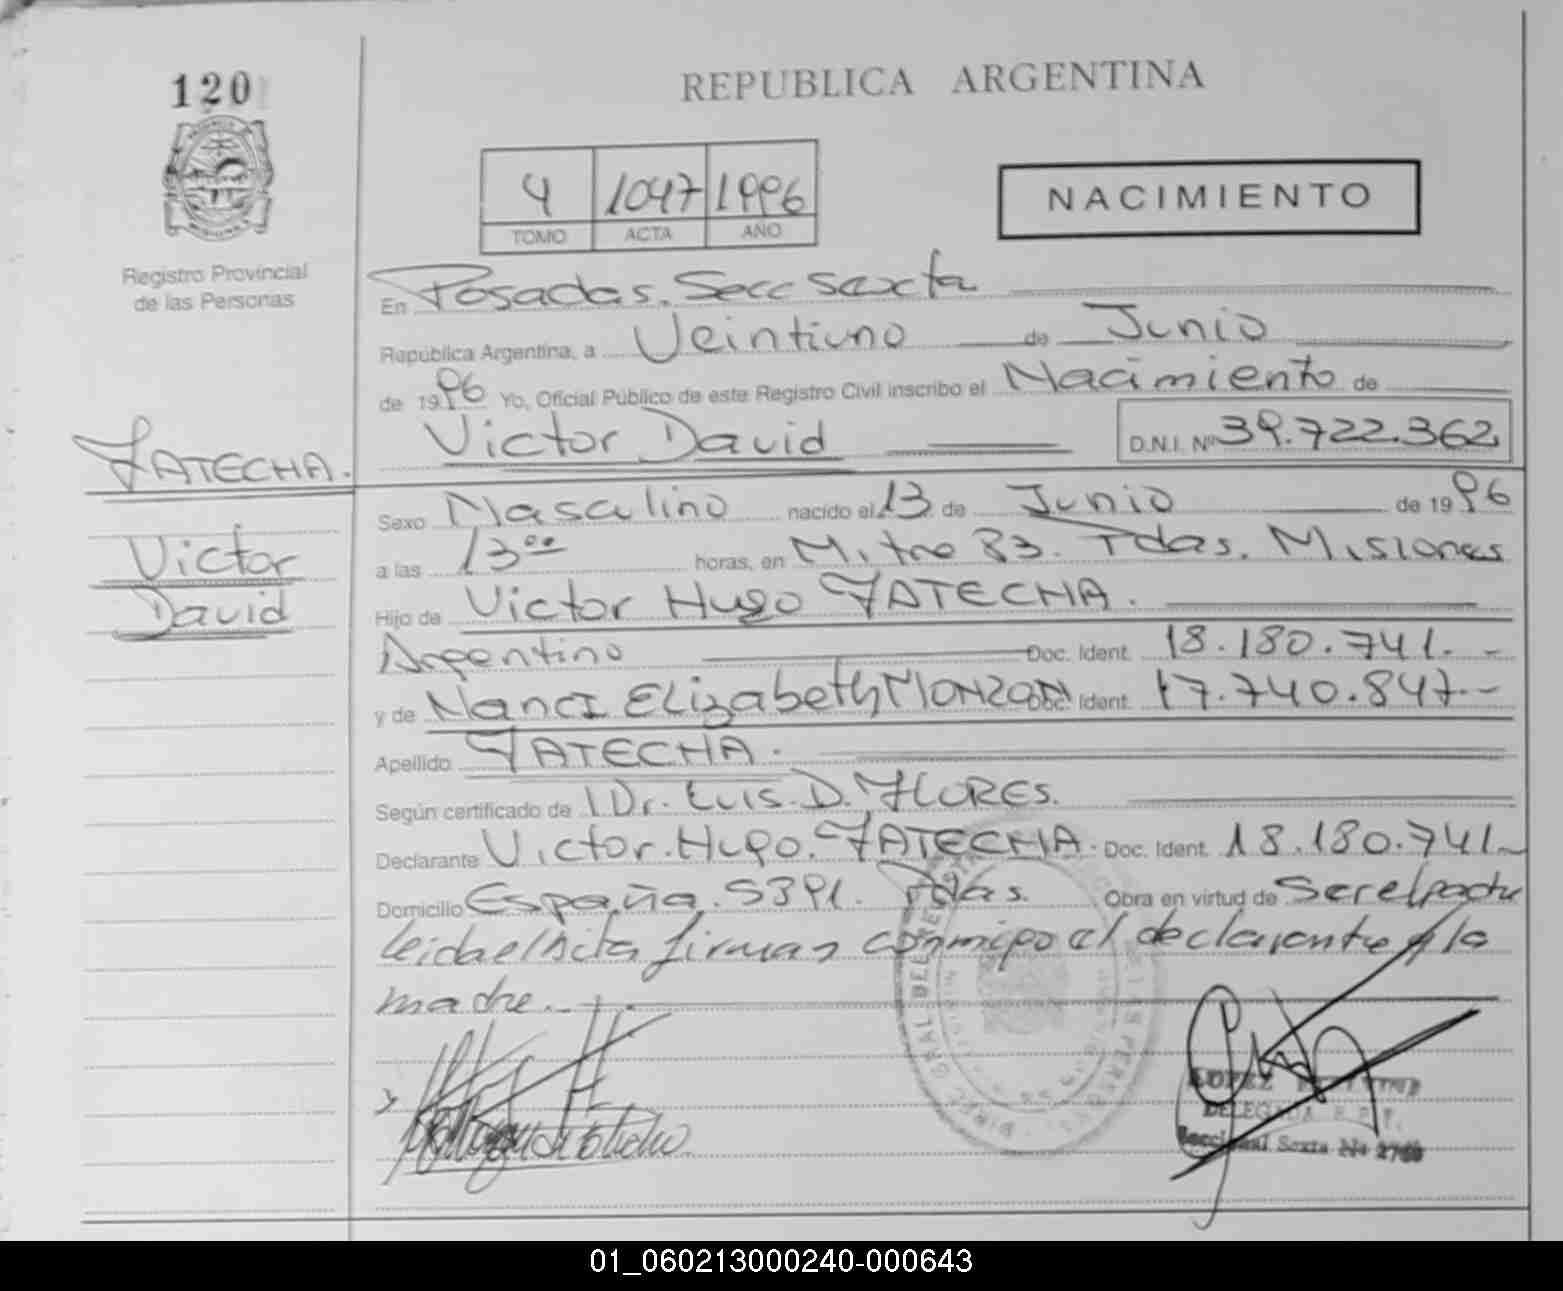 120
REPUBLICA ARGENTINA
4 1047 1996
TOMO ACTA AÑO
NACIMIENTO
Registro Provincial
de las Personas
En Posadas. Secc Sexta
República Argentina, a Veintiuno de Junio
de 1996 Yo, Oficial Público de este Registro Civil inscribo el Nacimiento de
Victor David D.N.I. Nº 39.722.362
FATECHA.
Victor
David
Sexo Masculino nacido el 13 de Junio de 1996
a las 13 00 horas, en Mitre 83. Pdas. Misiones
Hijo de Victor Hugo FATECHA.
Argentino Doc. Ident. 18.180.741.-
y de Nanci Elizabeth MONZON Doc. Ident. 17.740.847.-
Apellido FATECHA.
Según certificado de Dr. Luis. D. FLORES.
Declarante Victor. Hugo. FATECHA. Doc. Ident. 18.180.741.-
Domicilio España. 5391. Pdas. Obra en virtud de Ser el padre
leida el Acta firman conmigo el declarante y la
madre.-
LOPEZ
DELEGADA R.P.P.
Seccional Sexta Nº
01_060213000240-000643